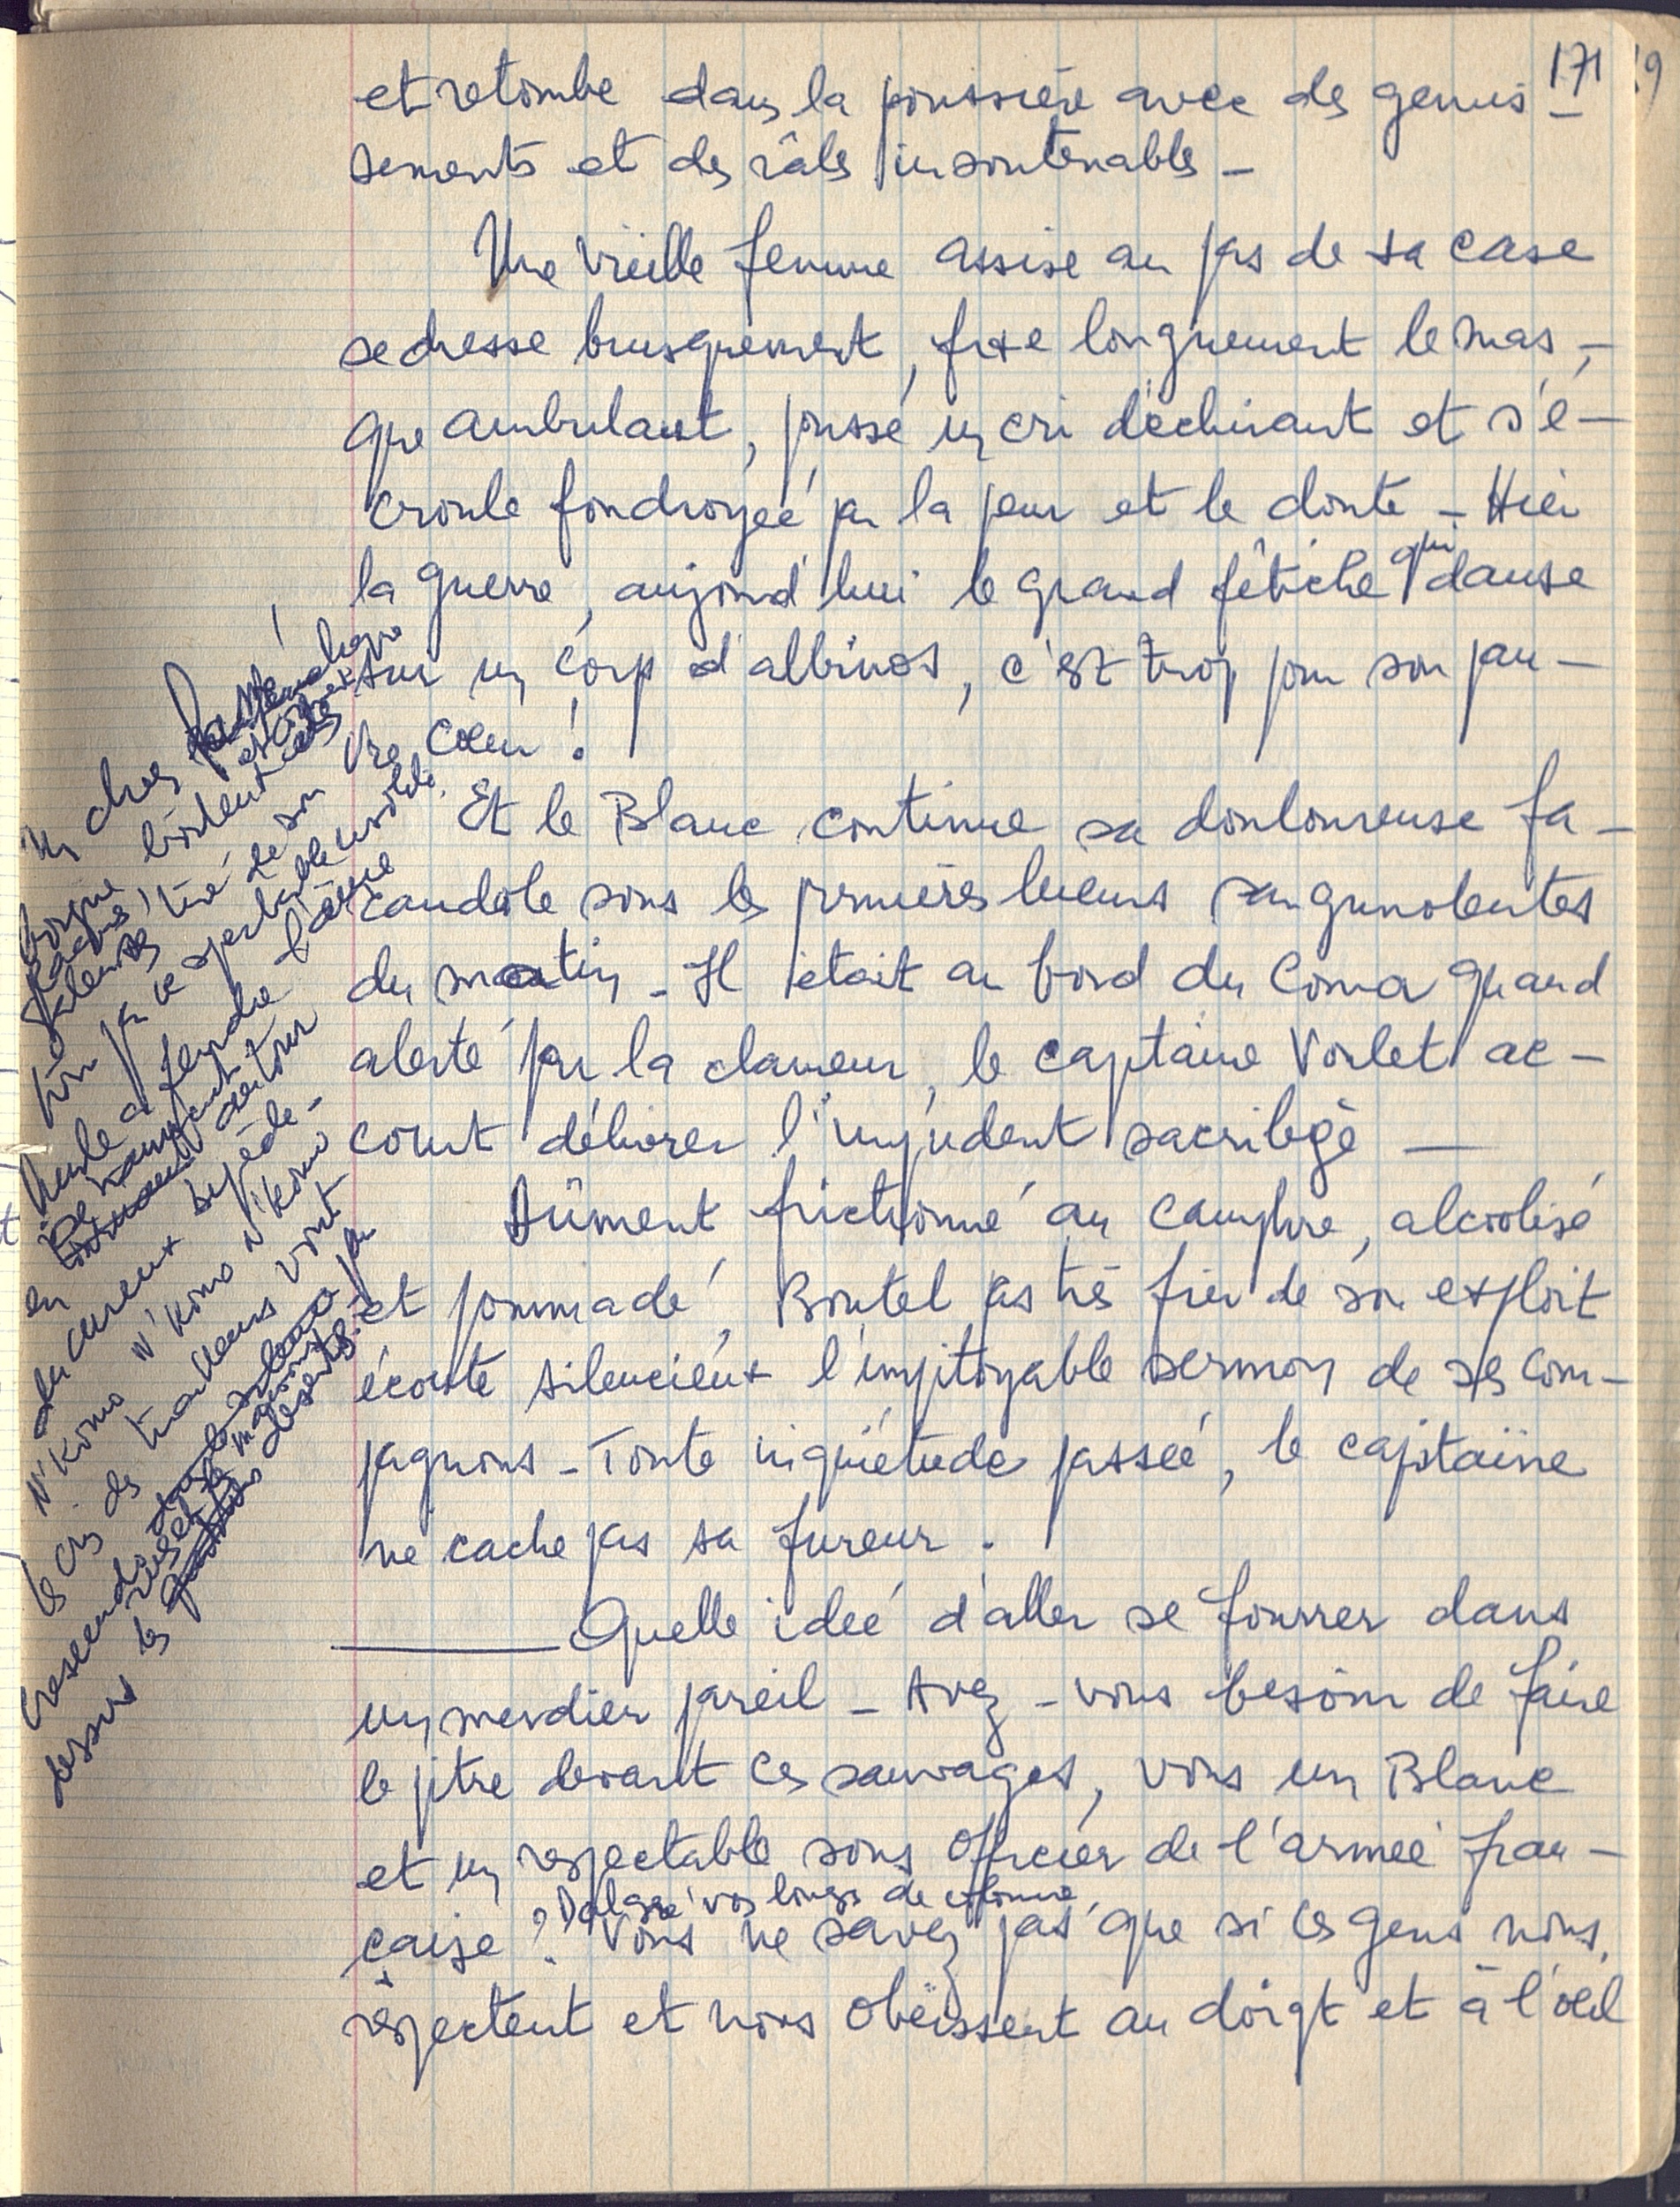 171
et retombe dans la poussière avec des gémis-
sements et des râles insoutenables -
Une vieille femme assise au pas de sa case
se dresse brusquement, fixe longuement le mas-
que ambulant, pousse un cri déchirant et s'é-
croule foudroyée par la peur et le doute - Hier
la guerre, aujourd'hui le grand fétiche qui danse
sur un corp d'albinos, c'est trop pour son pau-
vre cœur !
Et le Blanc continue sa douloureuse fa-
randole sous les premières lueurs sanguinolentes
du matin - Il était au bord du coma quand
alerté par la clameur, le capitaine Vorlet ac-
court délivrer l'imprudent sacrilège -
Dûment frictionné au camphre, alcoolisé
et pommadé, Boutel pas très fier de son exploit
écoute silencieux l'impitoyable sermon de ses com-
pagnons - Toute inquiétude passée, le capitaine
ne cache pas sa fureur .
Quelle idée d'aller se fourrer dans
un merdier pareil - Avez-vous besoin de faire
le pitre devant ces sauvages, vous un Blanc
et un respectable sous officier de l'armée fran-
çaise ? vos longs de
Vous ne savez pas que si ces gens nous
respectent et nous obéissent au doigt et à l'œil
Un chien
borgne
tiré de son
par ce spectacle insolite
hurle à fendre l'âme
en autour
du curieux bipède -
N'Komo N'Komo N'Komo
les cris des tirailleurs vont
crescendo
dessus les désertes